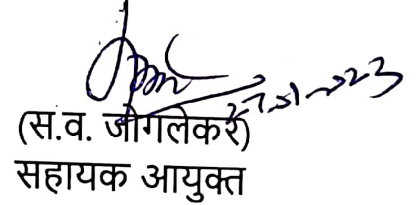 27.01.2023
(स.व. जोगलेकर)
सहायक आयुक्त